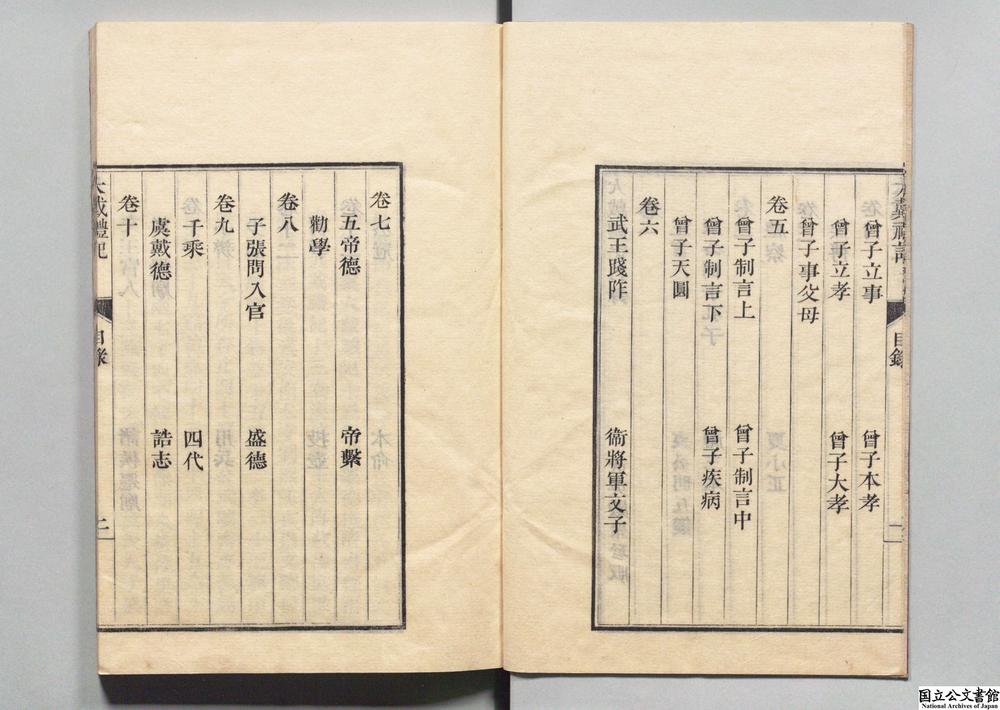 曾子立事　曾子本孝
曾子立孝　曾子大孝
曾子事父母
卷五
曾子制言上　曾子制言中
曾子制言下　曾子疾病
曾子天圓
卷六
武王踐阼　衞將軍文子
卷七
五帝德　帝繫
勸學
卷八
子張問入官　盛德
卷九
千乘　四代
虞戴德　誥志
卷十
大戴禮記　目錄　二
国立公文書館
National Archives of Japan